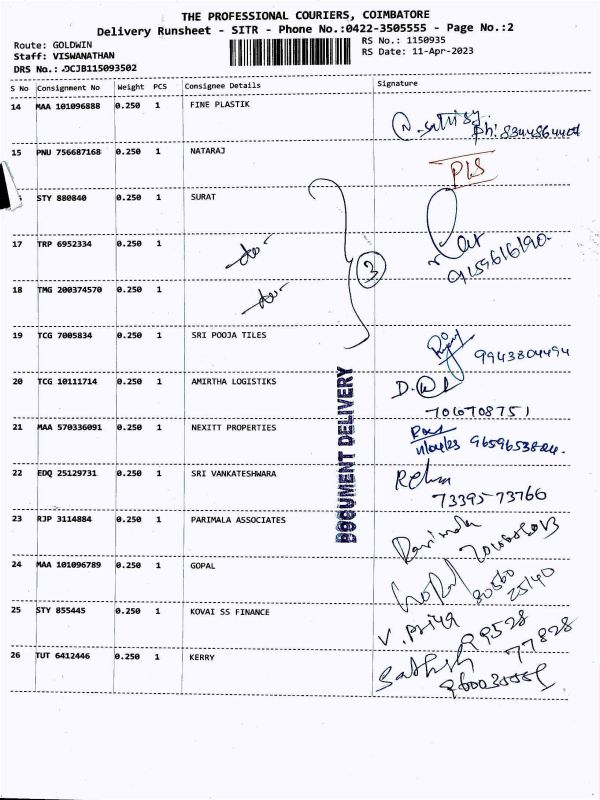 THE PROFESSIONAL COURIERS, COIMBATORE
Delivery Runsheet - SITR - Phone No.:0422-3505555 - Page No.:2
Route: GOLDWIN
Staff: VISWANATHAN
DRS No.: DCJB115093502
RS No.: 1150935
RS Date: 11-Apr-2023
S No Consignment No Weight PCS Consignee Details Signature
14 MAA 101096888 0.250 1 FINE PLASTIK
Ph: 8344864404
15 PNU 756687168 0.250 1 NATARAJ
STY 880840 0.250 1 SURAT
17 TRP 6952334 0.250 1
-do-
3
9159616190
18 TMG 200374570 0.250 1
-do-
19 TCG 7005834 0.250 1 SRI POOJA TILES
9943804494
20 TCG 10111714 0.250 1 AMIRTHA LOGISTIKS
7010708751
21 MAA 570336091 0.250 1 NEXITT PROPERTIES
22 EDQ 25129731 0.250 1 SRI VANKATESHWARA
73395 73766
23 RJP 3114884 0.250 1 PARIMALA ASSOCIATES
Parimala
24 MAA 101096789 0.250 1 GOPAL
Gopal 80560
25140
25 STY 855445 0.250 1 KOVAI SS FINANCE
V. Priya 99528
77828
26 TUT 6412446 0.250 1 KERRY
Sathish
DOCUMENT DELIVERY